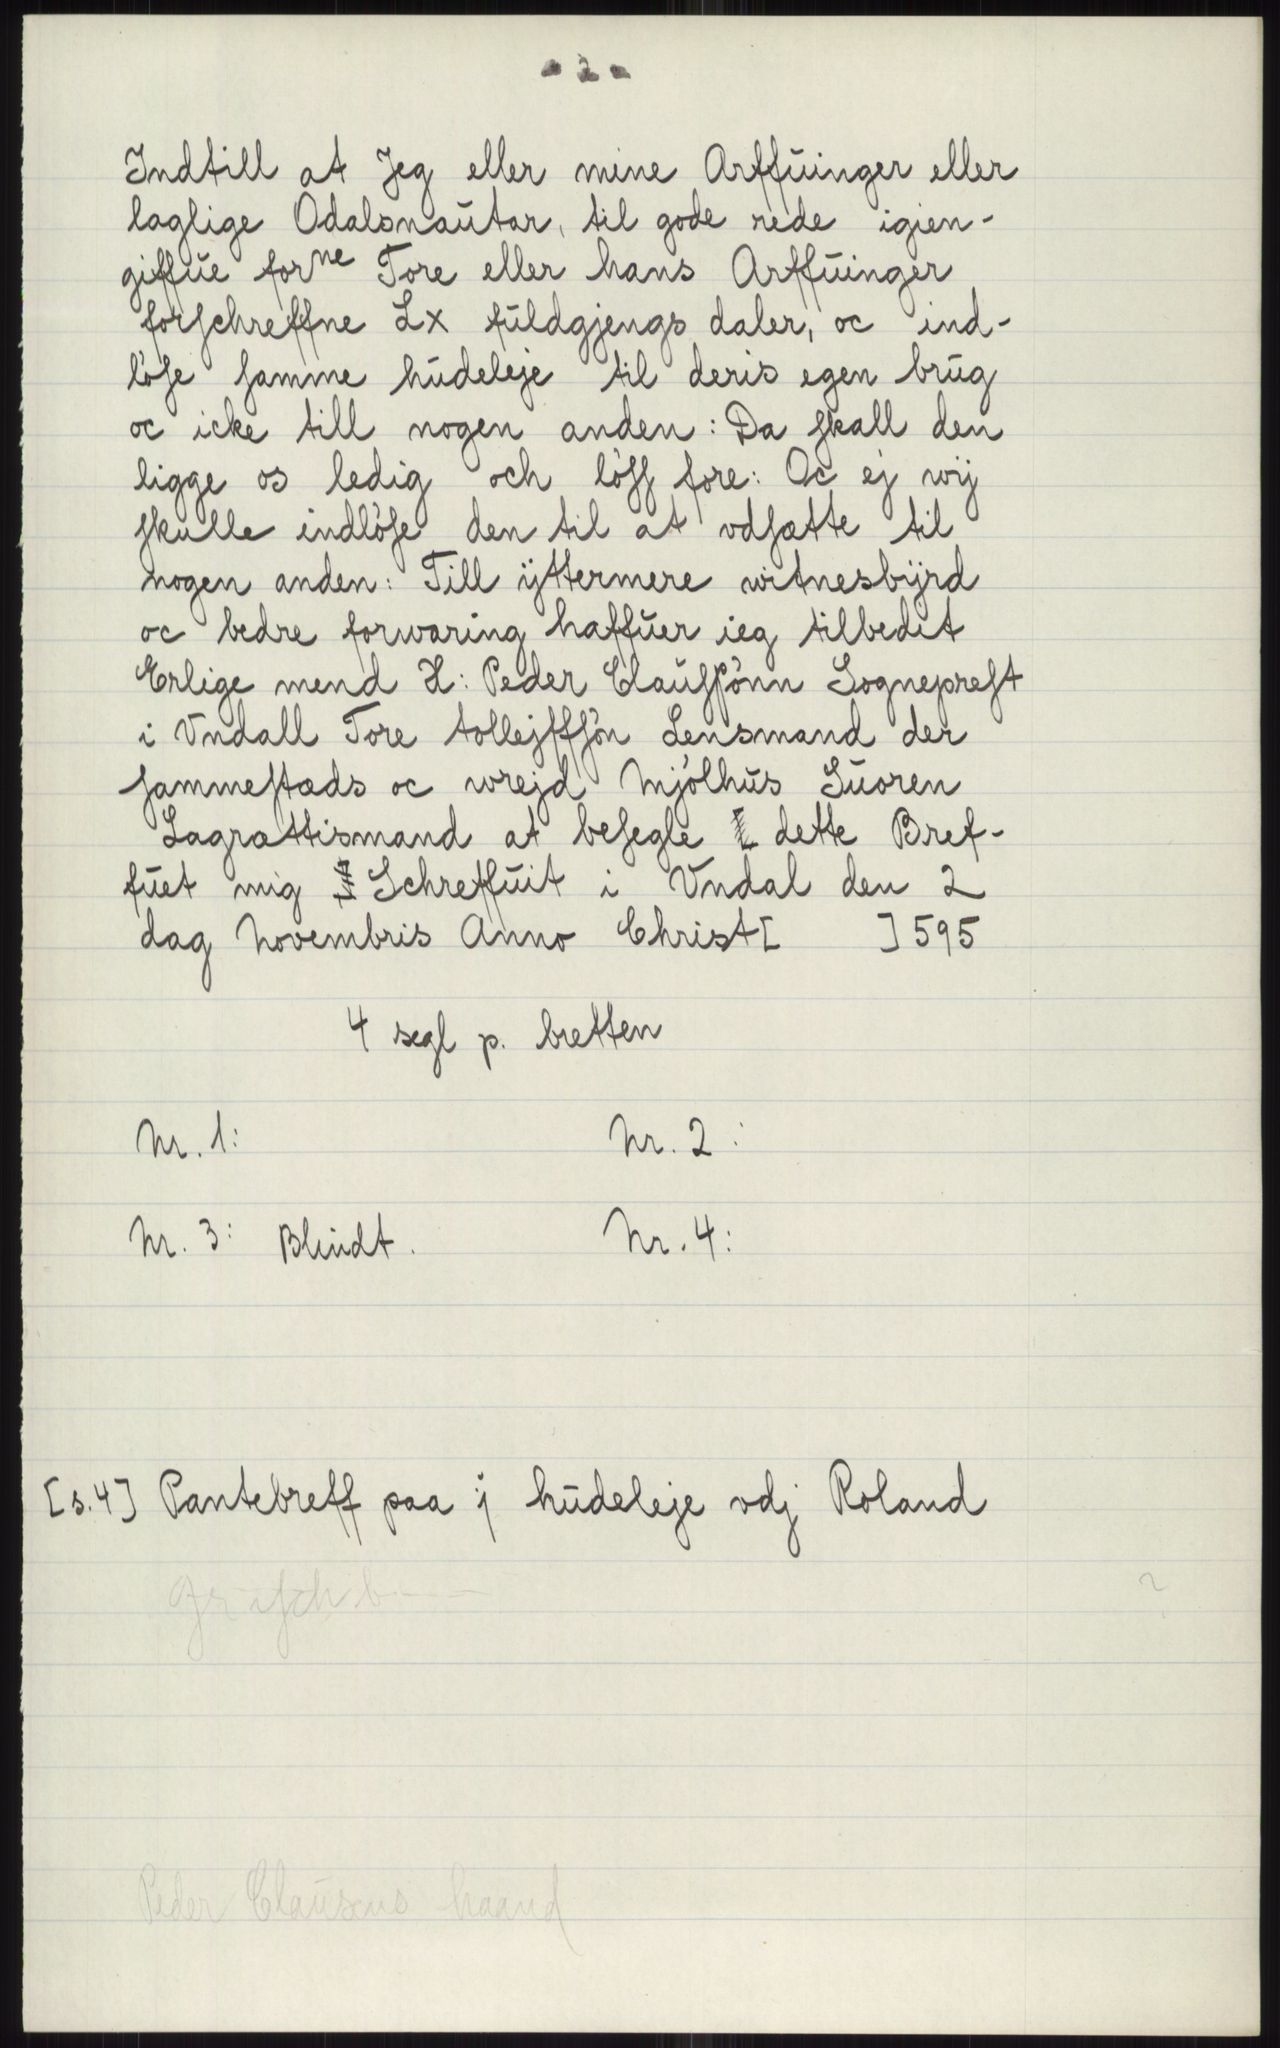 - 2 -
Indtill at Jeg eller mine Arffŭinger eller
laglige Odalsnaŭtar, til gode rede igien-
giffŭe forne Tore eller hans Arffŭinger
forschreffne Lx fŭldgjengs daler, oc ind-
löse samme hŭdeleje til deris egen brŭg
oc icke till nogen anden: Da skall den
ligge os ledig och löss fore: Oc ej wij
skulle indlöse den til at vdsætte til
nogen anden: Till ÿttermere witnesbÿrd
oc bedre forwaring haffŭer ieg tilbedit
Erlige mend H: Peder Claŭssönn Sogneprest
i Vndall Tore tollejffsön Lensmand der
sammestæds oc wrejd Mjölhŭs Sŭoren
Lagrættismand at besegle dette Bref-
fŭet mig Schreffŭit i Vndal den 2
dag Novembris Anno Christ[ ]595
4 segl p. bretten
Nr. 1: Nr. 2:
Nr. 3: Blindt. Nr. 4:
[s.4] Pantebreff paa j hŭdeleje vdj Roland
Peder Claŭsens haand